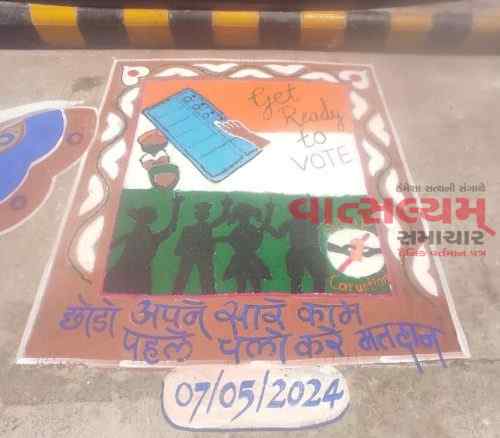 Get
Ready
to
VOTE
હંમેશા સત્યની સંગાથે
વાત્સલ્યમ્
સમાચાર
દૈનિક વર્તમાન પત્ર
Coruption
छोडो अपने सारे काम
पहले चलो करे मतदान
07/05/2024